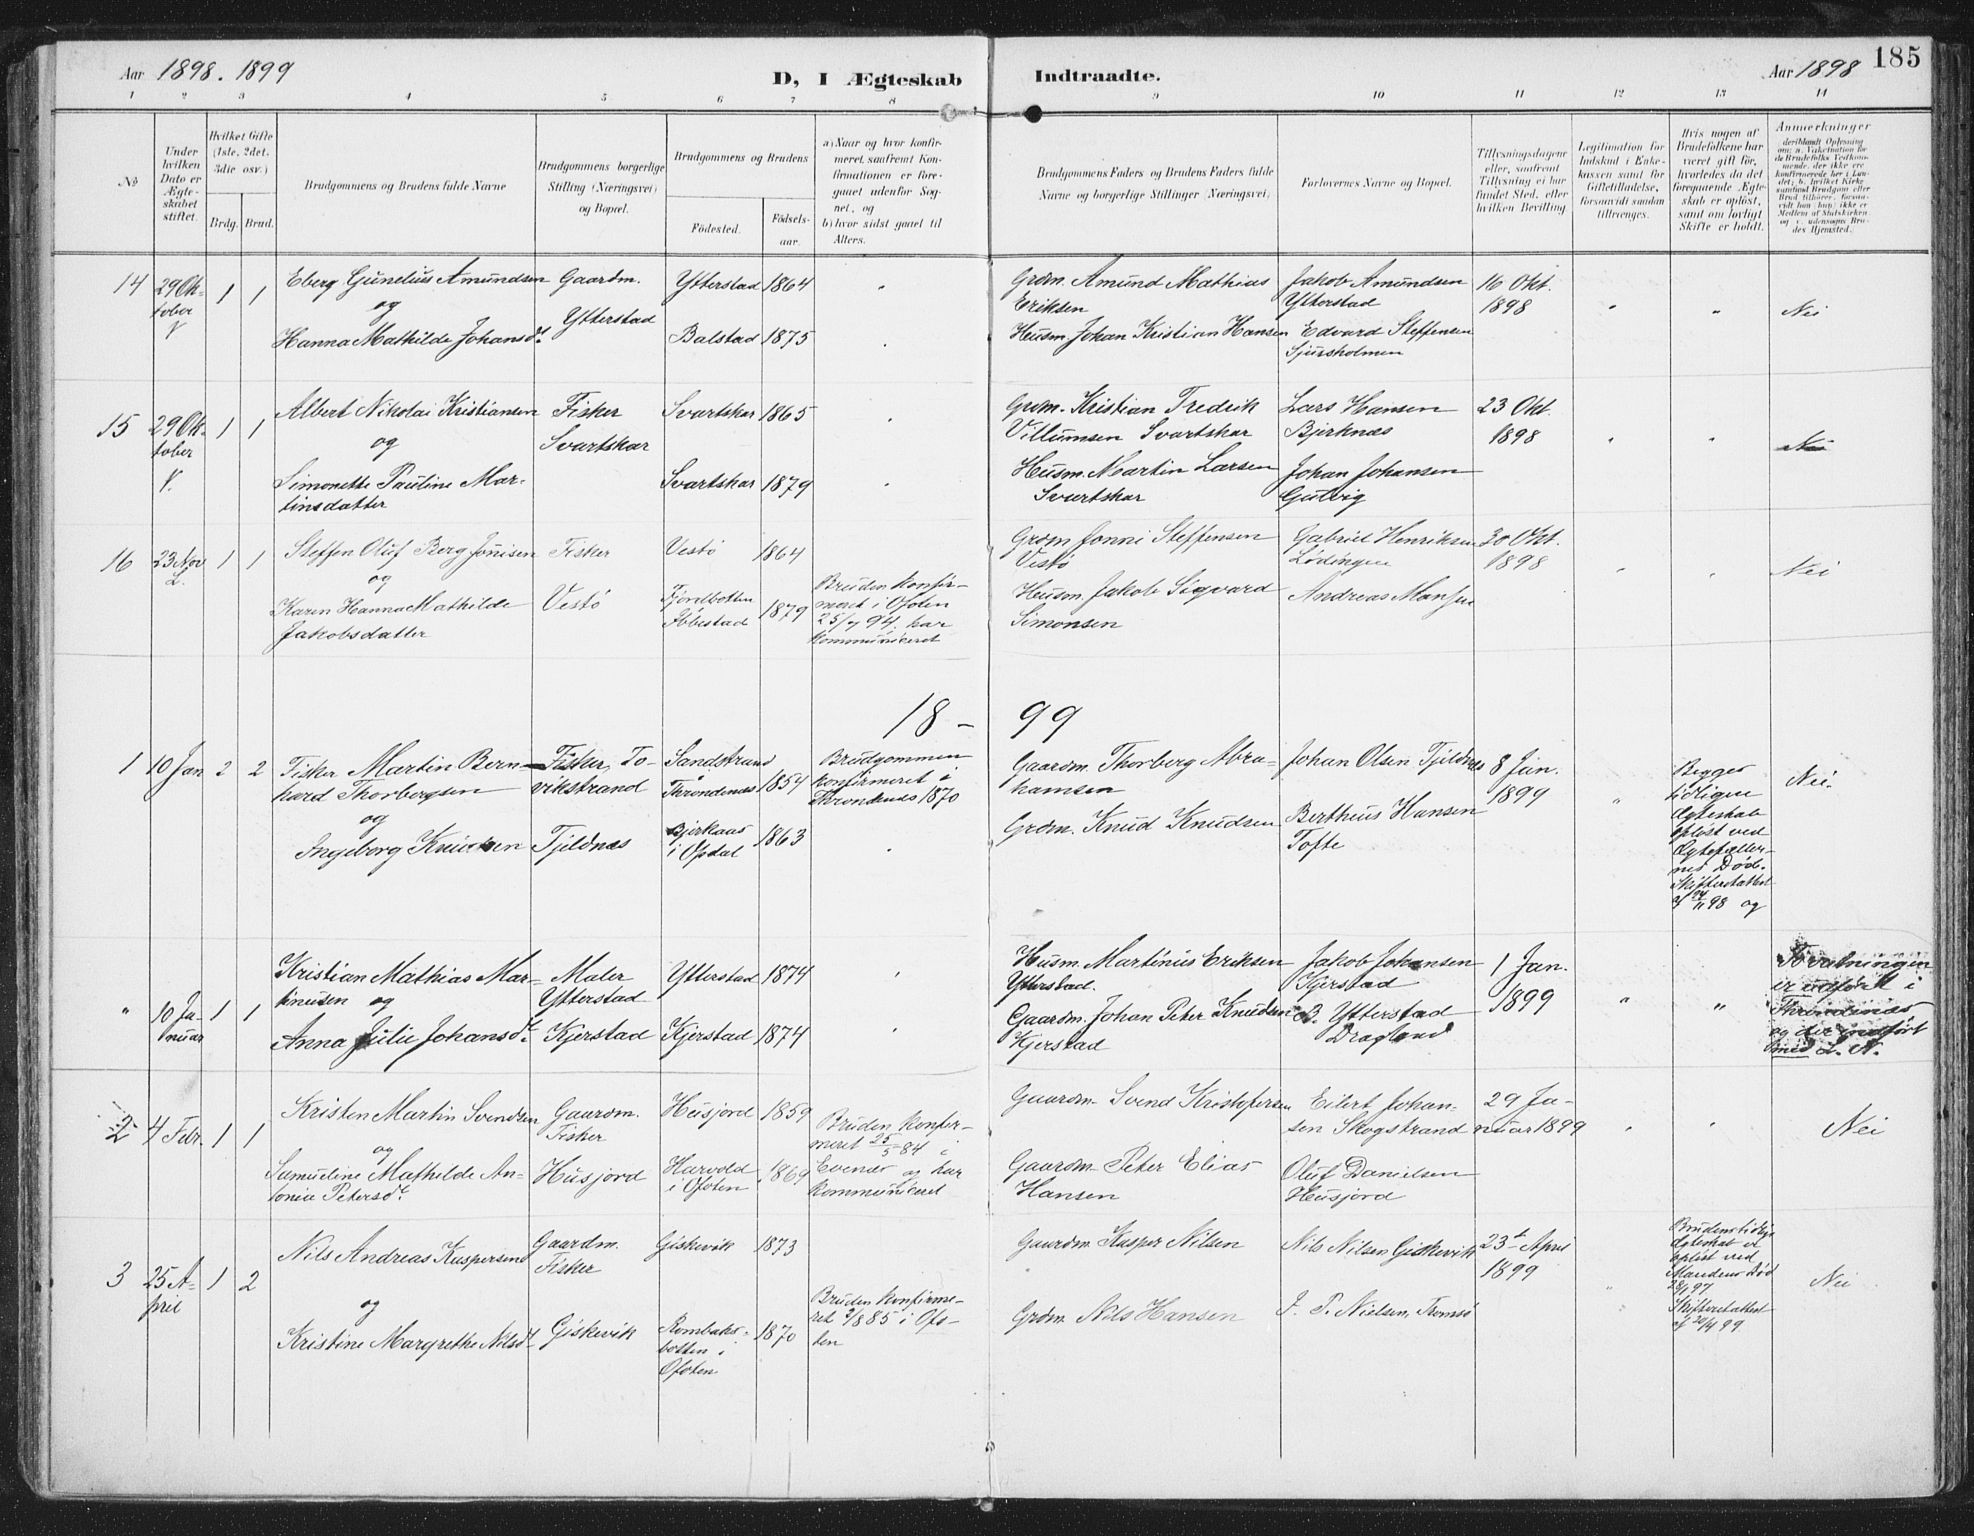 Aar 1898. 1899
D, I Ægteskab Indtraadte.
Aar 1898
185
1 2 3 4 5 6 7 8 9 10 11 12 13 14
No
Under hvilken Dato er Ægteskabet stiftet.
Hvilket Gifte (1ste, 2det, 3die osv.)
Brdg. Brud.
Brudgommens og Brudens fulde Navne
Brudgommens borgerlige Stilling (Næringsvei) og Bopæl.
Brudgommens og Brudens
Födested.
Födselsaar.
a) Naar og hvor konfirmeret, saafremt Konfirmationen er foregaaet udenfor Sognet, og
b) hvor sidst gaaet til Alters.
Brudgommens Faders og Brudens Faders fulde Navne og borgerlige Stillinger (Næringsvei).
Forlovernes Navne og Bopæl.
Tillysningsdagene eller, saafremt Tillysning ei har fundet Sted, efter hvilken Bevilling
Legitimation for Indskud i Enkekassen samt for Giftetilladelse, forsaavidt saadan tiltrænges.
Hvis nogen af Brudefolkene har været gift før, hvorledes da det foregaaende Ægteskab er opløst, samt om lovligt Skifte er holdt.
Anmærkninger
14
29 Oktober
1
1
Eberg Gunelius Amundsen
og
Hanna Mathilde Johansdt.
Gaardm.
Ytterstad
Ytterstad 1864
Balstad 1875
Grdm. Amund Mathias
Eriksen
Husm. Johan Kristian Hansen
Jakob Amundsen
Ytterstad
Edvard Steffensen
Sjursholmen
16 Okt.
1898
Nei
15
29 Oktober
1
1
Albert Nikolai Kristiansen
og
Simonette Pauline Martinsdatter
Fisker
Svartskar
Svartskar 1865
Svartskar 1879
Grdm. Kristian Fredrik
Villumsen Svartskar
Husm. Martin Larsen
Svartskar
Lars Hansen
Bjerknæs
Johan Johansen
Gulvig
23 Okt.
1898
16
23 Nov
1
1
Steffen Oluf Berg Jonisen
og
Karen Hanna Mathilde
Jakobsdatter
Fisker
Vestø
Vestø 1864
Fjordbotten
Ibbestad 1879
Bruden konfirmeret i Ofoten
25/7 94. har
kommuniceret
Grdm Jonni Steffensen
Vestø
Husm. Jakob Sigvard
Simonsen
Gabriel Henriksen
Lødingen
Andreas
30 Okt.
1898
Nei
18 - 99
1
10 Jan
2
2
Fisker Martin Bernhard Thorbergsen
og
Ingeborg Knudsen
Fisker, Tovikstrand
Tjeldnæs
Sandstrand
Throndenæs 1854
Bjerkaas
i Opdal 1863
Brudgommen
konfirmeret i
Throndenæs 1870
Gaardm. Thorberg Abrahamsen
Grdm. Knud Knudsen
Johan Olsen Tjeldnæs
Bertheus Hansen
Tofte
8 Jan.
1899
Begges
tidligere
Ægteskab
opløst ved
Ægtefællernes Død.
Skifteattest
af 98 og
Nei.
"
10 Januar
1
1
Kristian Mathias Martinusen og
Anna Julie Johansdt.
Maler
Ytterstad
Kjerstad
Ytterstad 1874
Kjerstad 1874
Husm. Martinus Eriksen
Ytterstad.
Gaardm. Johan Peter Knudsen
Kjerstad
Jakob Johansen
Kjerstad
B. Ytterstad
Dragland
1 Jan.
1899
er udført i
Throndenæs
og der indført
med L. N.
2
4 Febr.
1
1
Kristen Martin Svendsen
og
Samueline Mathilde Antonie Petersdt.
Gaardm.
Fisker
Husjord
Husjord 1859
Harvold
i Ofoten 1869
Bruden konfirmeret 25/5 84 i
Evenes og har
kommuniceret
Gaardm. Svend Kristofersen
Gaardm. Peter Elias
Hansen
Eilert Johansen Skogstrand
Oluf Danielsen
Husjord
29 Januar 1899
Nei
3
25 April
1
2
Nils Andreas Kaspersen
og
Kristine Margrethe Nilsdt.
Gaardm.
Fisker
Giskevik
Giskevik 1873
Rombaksbotten i
Ofoten 1870
Bruden konfirmeret 9/8 85 i Ofoten
Gaardm. Kasper Nilsen
Grdm. Nils Hansen
Nils Nilsen Giskevik
J. P. Nielsen, Tromsø
23de April
1899
Brudens tidlige
Ægteskab er
opløst ved
Mandens Død
97
Skifteattest
af 20/4 99.
Nei